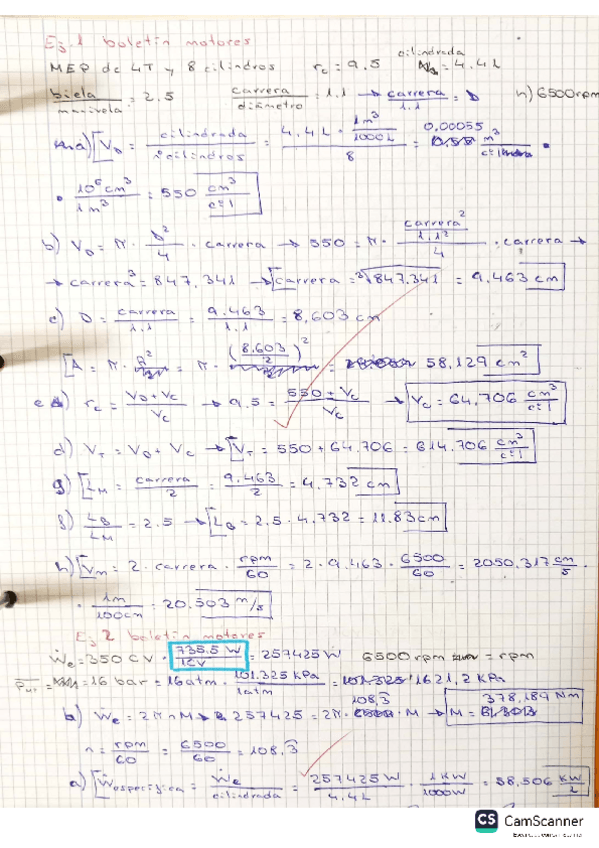 Ej.1 boletín motores
MEP de 4T y 8 cilindros rc = 9.5 cilindrada = 4.4L
biela/manivela = 2.5 carrera/diámetro = 1.1 → carrera/1.1 = D h) 6500rpm
a) VD = cilindrada/nºcilindros = 4.4L · 1m³/1000L / 8 = 0,00055 m³/cil ·
· 10⁶cm³/1m³ = 550 cm³/cil
b) VD = π · D²/4 · carrera → 550 = π · carrera²/1.1² / 4 · carrera →
→ carrera³ = 847.341 → carrera = ³√847.341 = 9.463 cm
c) D = carrera/1.1 = 9.463/1.1 = 8,603 cm
A = π · R² = π · (8.603/2)² = 58,129 cm²
e) rc = VD+Vc/Vc → 9.5 = 550+Vc/Vc → Vc = 64,706 cm³/cil
d) VT = VD + Vc → VT = 550 + 64.706 = 614.706 cm³/cil
g) LM = carrera/2 = 9.463/2 = 4.732 cm
f) LB/LM = 2.5 → LB = 2.5 · 4.732 = 11.83cm
h) Vm = 2 · carrera · rpm/60 = 2 · 9.463 · 6500/60 = 2050.317 cm/s ·
· 1m/100cm = 20.503 m/s
Ej 2 boletín motores
Ẇe = 350 CV · 735.5 W/1CV = 257425 W 6500rpm = rpm
= 16 bar = 16atm · 101.325 KPa/1atm = 1621,2 KPa
b) Ẇe = 2πnM → 257425 = 2π · 108,3 · M → M = 378,189 Nm
n = rpm/60 = 6500/60 = 108.3
a) Ẇespecífica = Ẇe/cilindrada = 257425 W/4.4L · 1KW/1000W = 58,506 KW/L
CS CamScanner